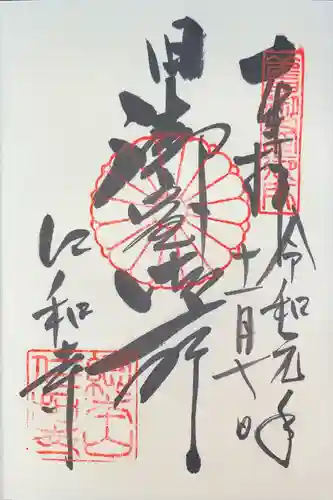 奉拝
令和元年
十一月十日
旧御室御所
仁和寺